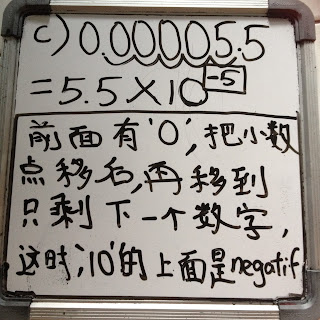 c) 0.00005.5
=5.5×10^-5
前面有'0',把小数
点移右,再移到
只剩下一个数字,
这时,'10'的上面是negatif